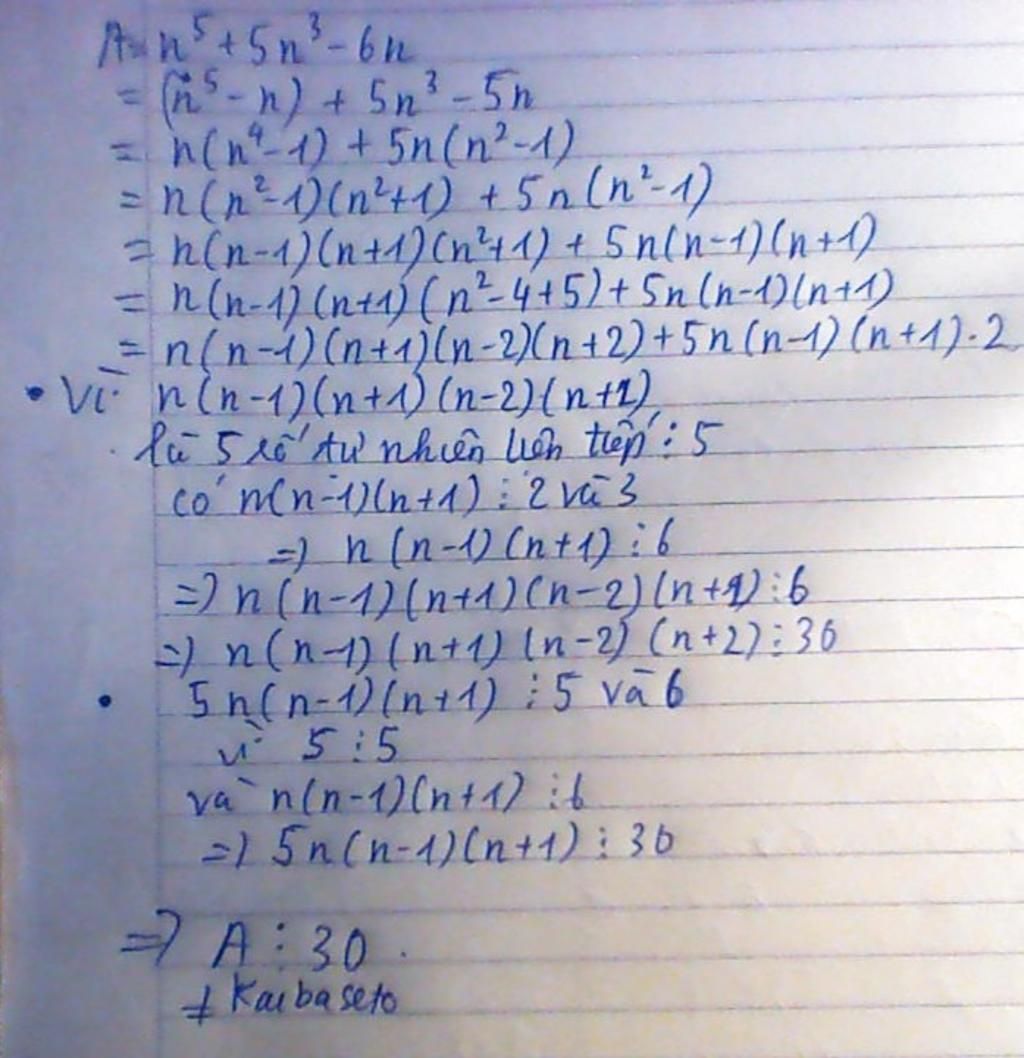 A = n⁵ + 5n³ - 6n
= (n⁵ - n) + 5n³ - 5n
= n(n⁴-1) + 5n(n²-1)
= n(n²-1)(n²+1) + 5n(n²-1)
= n(n-1)(n+1)(n²+1) + 5n(n-1)(n+1)
= n(n-1)(n+1)(n²-4+5) + 5n(n-1)(n+1)
= n(n-1)(n+1)(n-2)(n+2) + 5n(n-1)(n+1).2
• Vì n(n-1)(n+1)(n-2)(n+2)
là 5 số tự nhiên liên tiếp ⋮ 5
có n(n-1)(n+1) ⋮ 2 và 3
=> n(n-1)(n+1) ⋮ 6
=> n(n-1)(n+1)(n-2)(n+2) ⋮ 6
=> n(n-1)(n+1)(n-2)(n+2) ⋮ 30
• 5n(n-1)(n+1) ⋮ 5 và 6
vì 5 ⋮ 5
và n(n-1)(n+1) ⋮ 6
=> 5n(n-1)(n+1) ⋮ 30
=> A ⋮ 30.
+ Kaibaseto